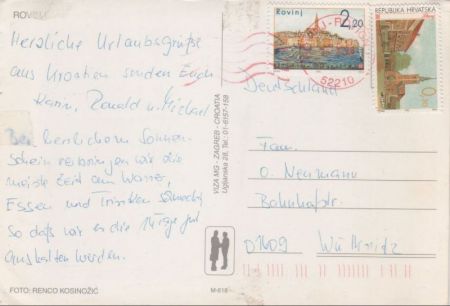 ROVINJ
Herzliche Urlaubsgrüße
aus Kroatien senden Euch
Karin, Ronald u. Michael
Bei herrlichem Sonnen-
schein verbringen wir die
meiste Zeit am Wasser,
Essen und Trinken schmeckt,
so daß wir es die Tage gut
aushalten werden.
FOTO: RENCO KOSINOŽIĆ
VIZA MG - ZAGREB - CROATIA
Ugljanska 28, Tel.: 01-6157-158
M-618
Rovinj
2,20
REPUBLIKA HRVATSKA
52210
Deutschland
Fam.
O. Neumann
Bahnhofstr.
01609 Wülknitz